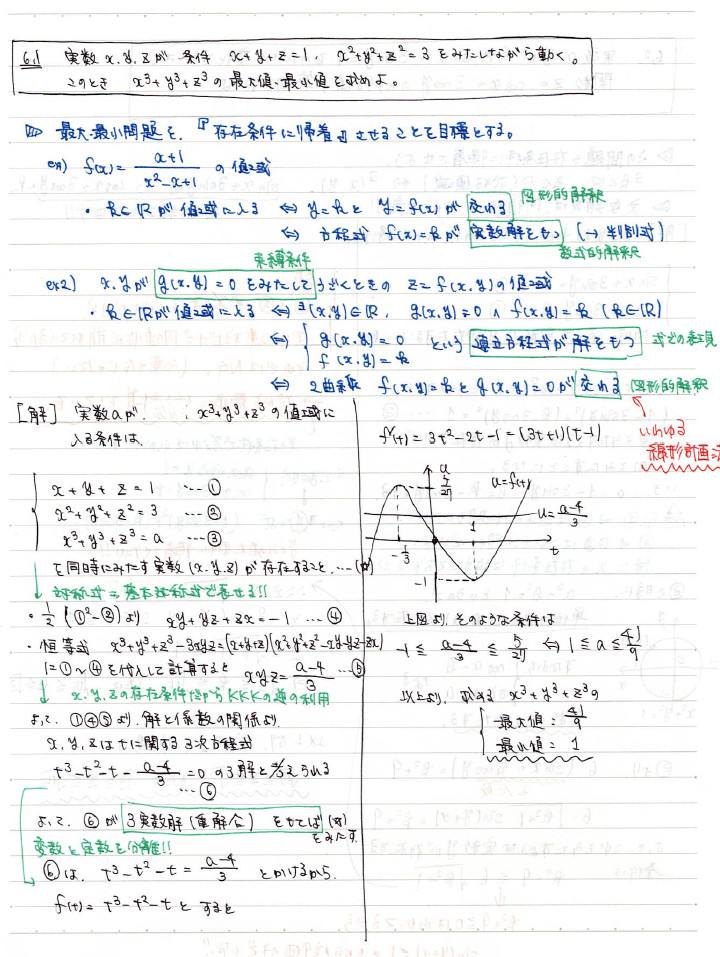 6.1 実数 x, y, z が 条件 x+y+z=1, x²+y²+z²=3 をみたしながら動く。
このとき x³+y³+z³ の 最大値・最小値を求めよ。
最大・最小問題を、『存在条件に帰着』させることを目標とする。
ex1) f(x)= (x+1)/(x²-x+1) の値域
図形的解釈
・k∈ℝが値域に入る ⇔ y=k と y=f(x) が 交わる
⇔ 方程式 f(x)=k が 実数解をもつ (→ 判別式)
数式的解釈
束縛条件
ex2) x, yが g(x,y)=0 をみたして うごくときの z=f(x,y) の値域
・k∈ℝが値域に入る ⇔ ∃(x,y)∈ℝ, g(x,y)=0 ∧ f(x,y)=k (k∈ℝ)
⇔ { g(x,y)=0 f(x,y)=k という 連立方程式が解をもつ 式での表現
⇔ 2曲線 f(x,y)=k と g(x,y)=0 が 交わる 図形的解釈
いわゆる
線形計画法
[解] 実数aが、x³+y³+z³ の値域に
入る条件は、
x+y+z=1 …①
x²+y²+z²=3 …②
x³+y³+z³=a …③
を同時にみたす実数(x,y,z)が存在すること …(☆)
対称式 = 基本対称式で表せる!!
・1/2(①²-②)より xy+yz+zx=-1 …④
・恒等式 x³+y³+z³-3xyz=(x+y+z)(x²+y²+z²-xy-yz-zx)
に①〜④を代入して計算すると xyz=(a-4)/3 …⑤
x,y,zの存在条件だからKKKの逆の利用
よって、①④⑤より、解と係数の関係より、
x,y,zはtに関する3次方程式
t³-t²-t-(a-4)/3=0 の3解と考えられる
…⑥
よって、⑥が 3実数解(重解含) をもてば (☆)
をみたす
変数と定数を分離!!
⑥は、t³-t²-t=(a-4)/3 とかけるから、
f(t)=t³-t²-t とすると
f'(t)=3t²-2t-1=(3t+1)(t-1)
u
5/27
u=f(t)
1
u=(a-4)/3
-1/3
t
-1
上図より、そのような条件は
-1≦(a-4)/3≦5/27 ⇔ 1≦a≦41/9
以上より、求める x³+y³+z³の
最大値：41/9
最小値：1